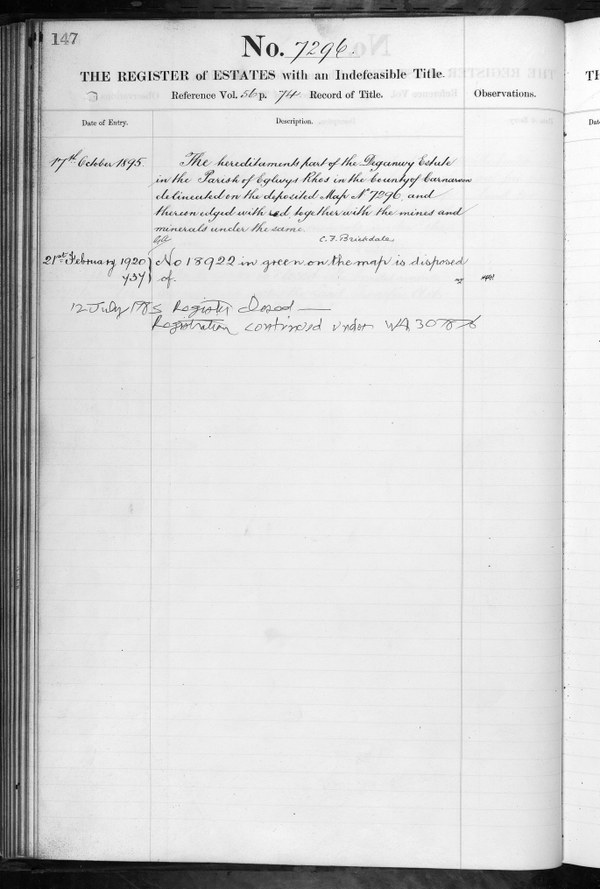 147
No. 7296.
THE REGISTER of ESTATES with an Indefeasible Title.
Reference Vol. 56 p. 74 Record of Title.
Observations.
Date of Entry.
Description.
17th October 1895.
The hereditaments part of the Deganwy Estate
in the Parish of Eglwys Rhos in the County of Carnarvon
delineated on the deposited Map No 7296 and
thereon edged with red together with the mines and
minerals under the same.
C. F. Brickdale
21st February 1920
No 13922 in green on the map is disposed
of.
12 July 1985 Register closed —
Registration continued under WA 307876
TH
Dat